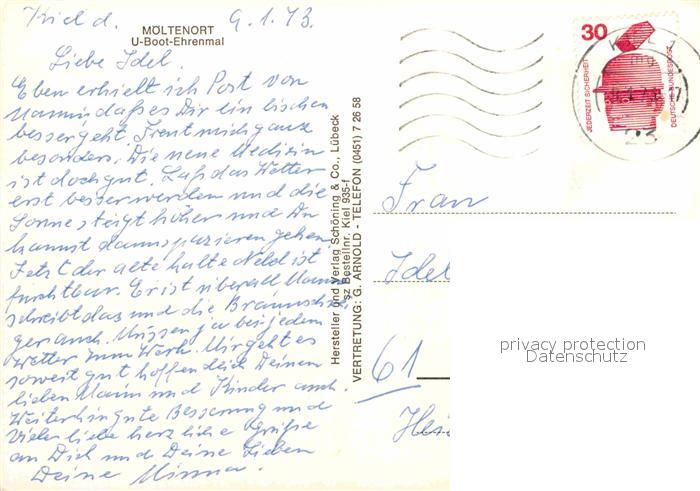 Kiel d. 9.1.73.
MÖLTENORT
U-Boot-Ehrenmal
Liebe Idel.
Eben erhielt ich Post von
Mamin dass es Dir ein bischen
besser geht. Freut mich ganz
besonders. Die neue Medizin
ist doch gut. Lass das Wetter
erst besser werden und die
Sonne steigt höher und Du
kannst dann spazieren gehen.
Jetzt der alte kalte Nebel ist
furchtbar. Er ist überall
schreibt das und die Braunschwei
ger auch. Müssen ja bei jedem
Wetter zum Werk. Mir geht es
soweit gut hoffentlich Deinen
lieben Mann und Kinder auch.
Weiterhin gute Besserung und
Viele liebe herzliche Grüße
an Dich und Deine Lieben
Deine Minna.
Hersteller und Verlag Schöning & Co., Lübeck
sz Bestellnr. Kiel 935-f
VERTRETUNG: G. ARNOLD - TELEFON (0451) 7 26 58
30
JEDERZEIT SICHERHEIT
DEUTSCHE BUNDESPOST
23
Frau
Idel
61
Hei
privacy protection
Datenschutz